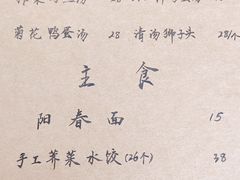 菊花鸭蛋汤 28 清汤狮子头 28/个
主食
阳春面 15
手工荠菜水饺(26个) 38